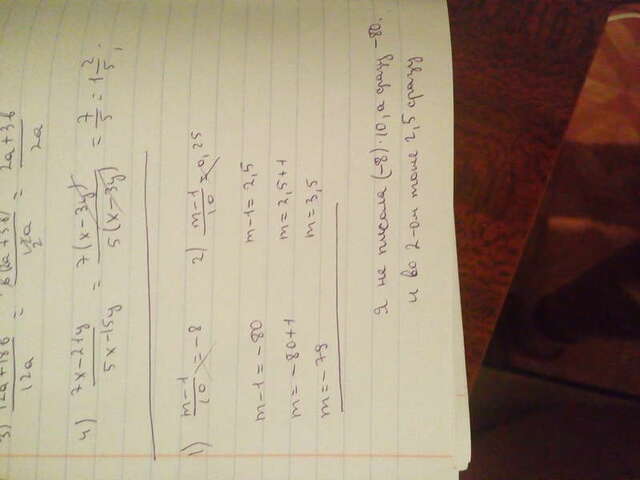 3) (12a+18b)/12a = 6(2a+3b)/12a = (2a+3b)/2a
2
4) (7x-21y)/(5x-15y) = 7(x-3y)/5(x-3y) = 7/5 = 1 2/5;
1) (m-1)/10 = -8    2) (m-1)/10 = 0,25
m-1 = -80    m-1 = 2,5
m = -80+1    m = 2,5+1
m = -79    m = 3,5
Я не писала (-8)·10, а сразу -80.
и во 2-ом тоже 2,5 сразу